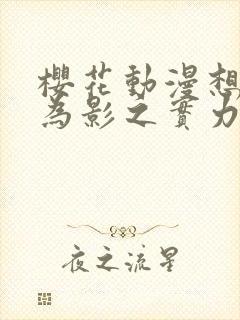 櫻花動漫想
為影之實力
夜之流星